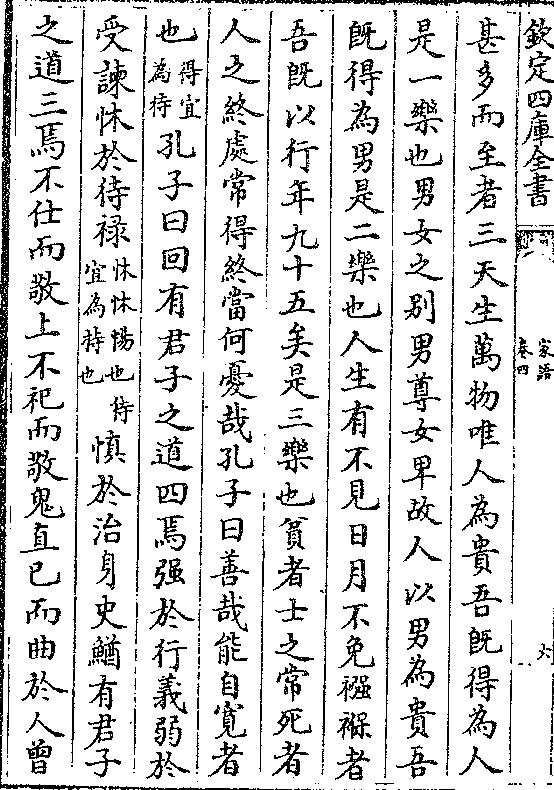 欽定四庫全書 家語 卷四 六
甚多而至者三天生萬物唯人為貴吾既得為人
是一樂也男女之别男尊女卑故人以男為貴吾
既得為男是二樂也人生有不見日月不免襁褓者
吾既以行年九十五矣是三樂也貧者士之常死者
人之終處常得終當何憂哉孔子曰善哉能自寛者
也得宜為待孔子曰回有君子之道四焉强於行義弱於
受諫怵於待禄怵怵惕也待宜為持也慎於治身史鰌有君子
之道三焉不仕而敬上不祀而敬鬼直已而曲於人曾